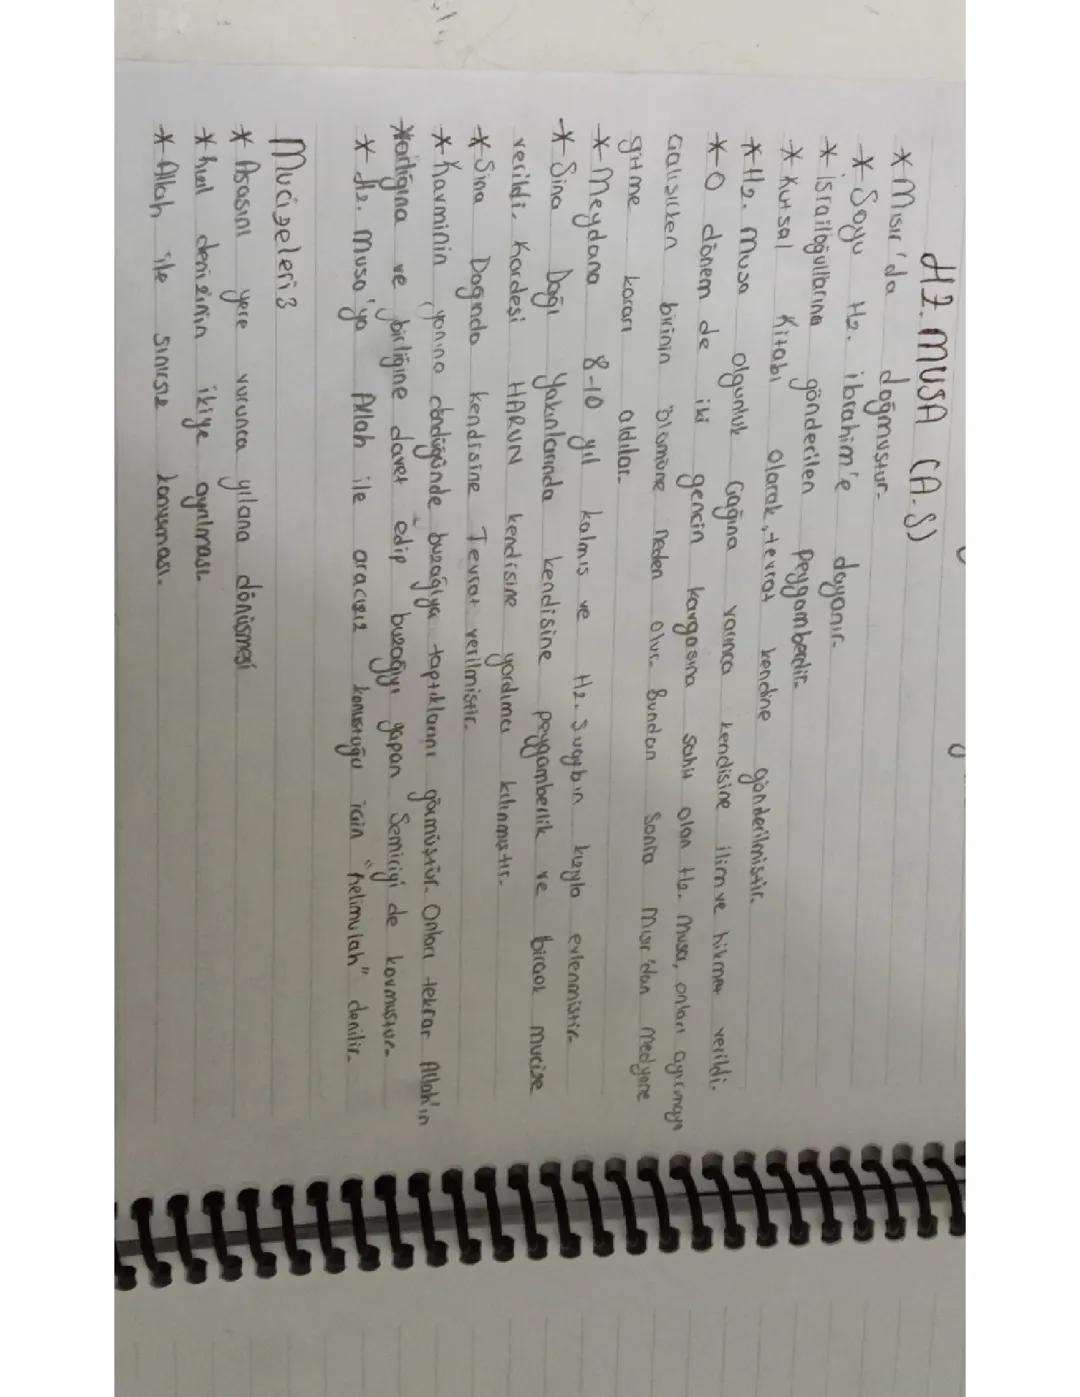 HZ. MUSA (A.S)
* Mısır'da doğmuştur.
* Soyu Hz. ibrahim'e dayanır.
* israiloğullarına gönderilen Peygamberdir.
* Kutsal Kitabı olarak, tevrat kendine gönderilmiştir.
* Hz. musa olgunluk Çağına varınca kendisine ilim ve hikmet verildi.
* O dönem de iki gencin kavgasına şahit olan Hz. musa, onları ayırmaya
Çalışırken birinin ölümüne neden olur. Bundan sonra mısır'dan medyene
gitme kararı aldılar.
* Meydana 8-10 yıl kalmış ve Hz. Suaybın kızıyla evlenmiştir.
* Sina Dağı Yakınlarında kendisine peygamberlik ve birçok mucize
verildi. Kardeşi HARUN kendisine yardımcı kılınmıştır.
* Sina Dagında kendisine Tevrat verilmiştir.
* Kavminin yanına döndüğünde buzağıya taptıklarını görmüştür. Onları tekrar Allah'ın
varlığına ve birliğine davet edip buzağıyı yapan Semiriyi de kovmuştur.
* Hz. musa'ya Allah ile aracısız konuştuğu için "helimulah" denilir.
Mucizeleri
* Asasını yere vurunca yılana dönüşmesi
* kızıl denizinin ikiye ayrılması.
* Allah ile sınırsız konuşması.